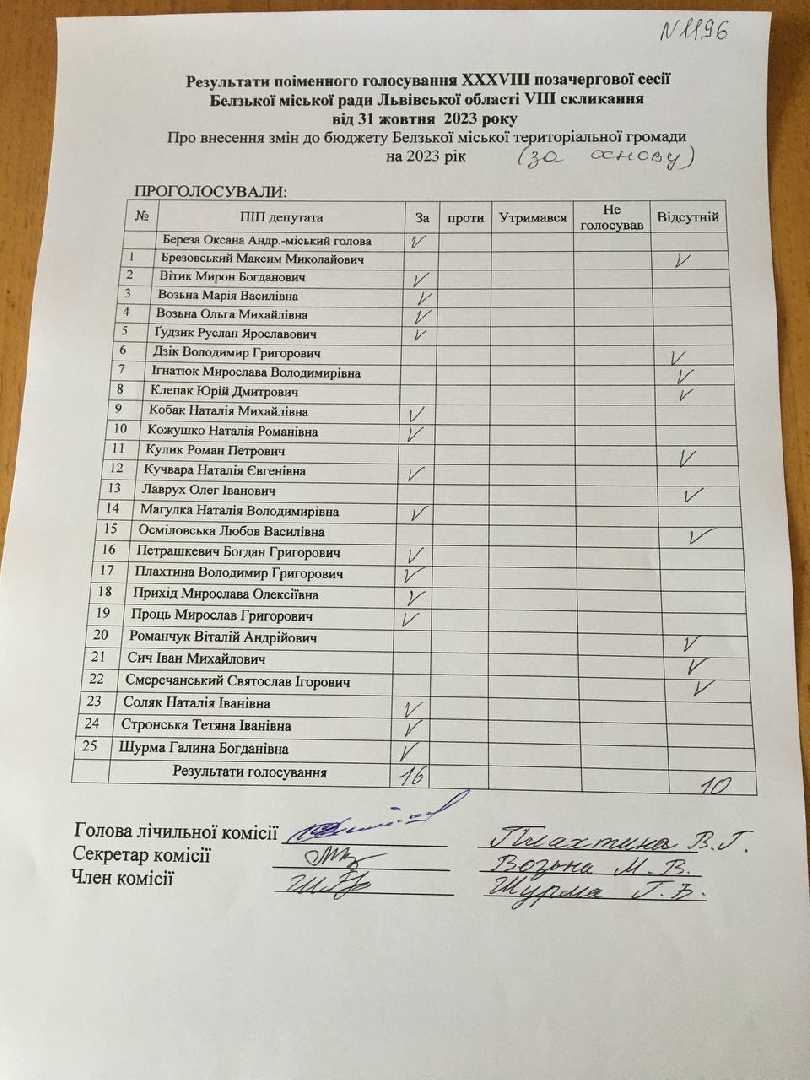 N 1196
Результати поіменного голосування XXXVIII позачергової сесії
Белзької міської ради Львівської області VIII скликання
від 31 жовтня 2023 року
Про внесення змін до бюджету Белзької міської територіальної громади
на 2023 рік (за основу)
ПРОГОЛОСУВАЛИ:
№ ПІП депутата За проти Утримався Не голосував Відсутній
Береза Оксана Андр.-міський голова V
1 Брезовський Максим Миколайович V
2 Вітик Мирон Богданович V
3 Возьна Марія Василівна V
4 Возьна Ольга Михайлівна V
5 Ґудзик Руслан Ярославович V
6 Дзік Володимир Григорович V
7 Ігнатюк Мирослава Володимирівна V
8 Клепак Юрій Дмитрович V
9 Кобак Наталія Михайлівна V
10 Кожушко Наталія Романівна V
11 Кулик Роман Петрович V
12 Кучвара Наталія Євгенівна V
13 Лаврух Олег Іванович V
14 Магулка Наталія Володимирівна V
15 Осміловська Любов Василівна V
16 Петрашкевич Богдан Григорович V
17 Плахтина Володимир Григорович V
18 Прихід Мирослава Олексіївна V
19 Проць Мирослав Григорович V
20 Романчук Віталій Андрійович V
21 Сич Іван Михайлович V
22 Смеречанський Святослав Ігорович V
23 Соляк Наталія Іванівна V
24 Стронська Тетяна Іванівна V
25 Шурма Галина Богданівна V
Результати голосування 16 10
Голова лічильної комісії Плахтина В.Г.
Секретар комісії Возьна М.В.
Член комісії Шурма Г.Б.